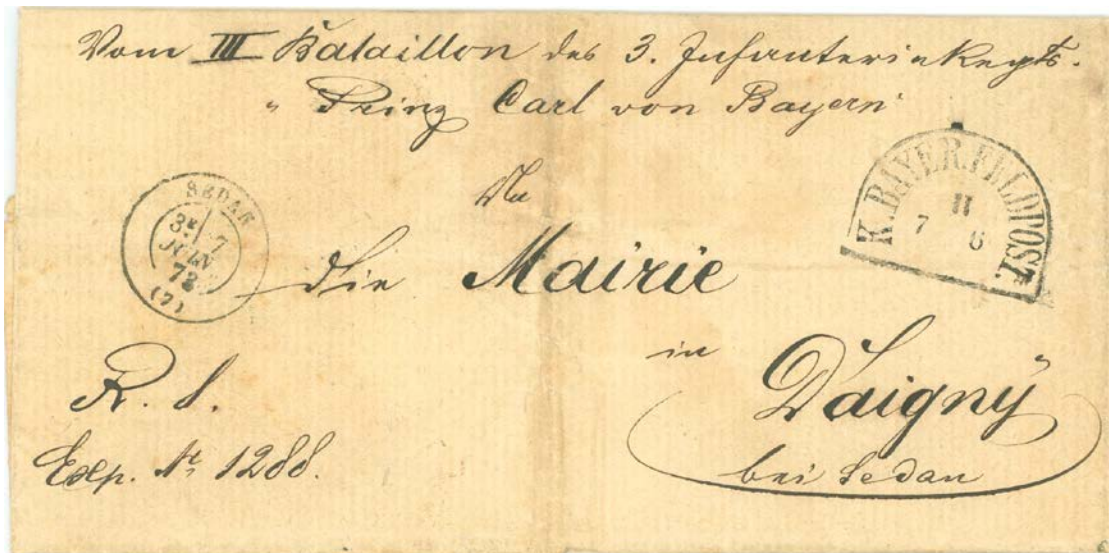 Vom III Bataillon des 3. Infanterie Regts.
"Prinz Carl von Bayern"
An
die Mairie
in
Daigny
bei Sedan
R. S.
Exp. Nr. 1288.
SEDAN
3E 7
JUIN
72
(7)
K. BAYER. FELDPOST.
II
7 6